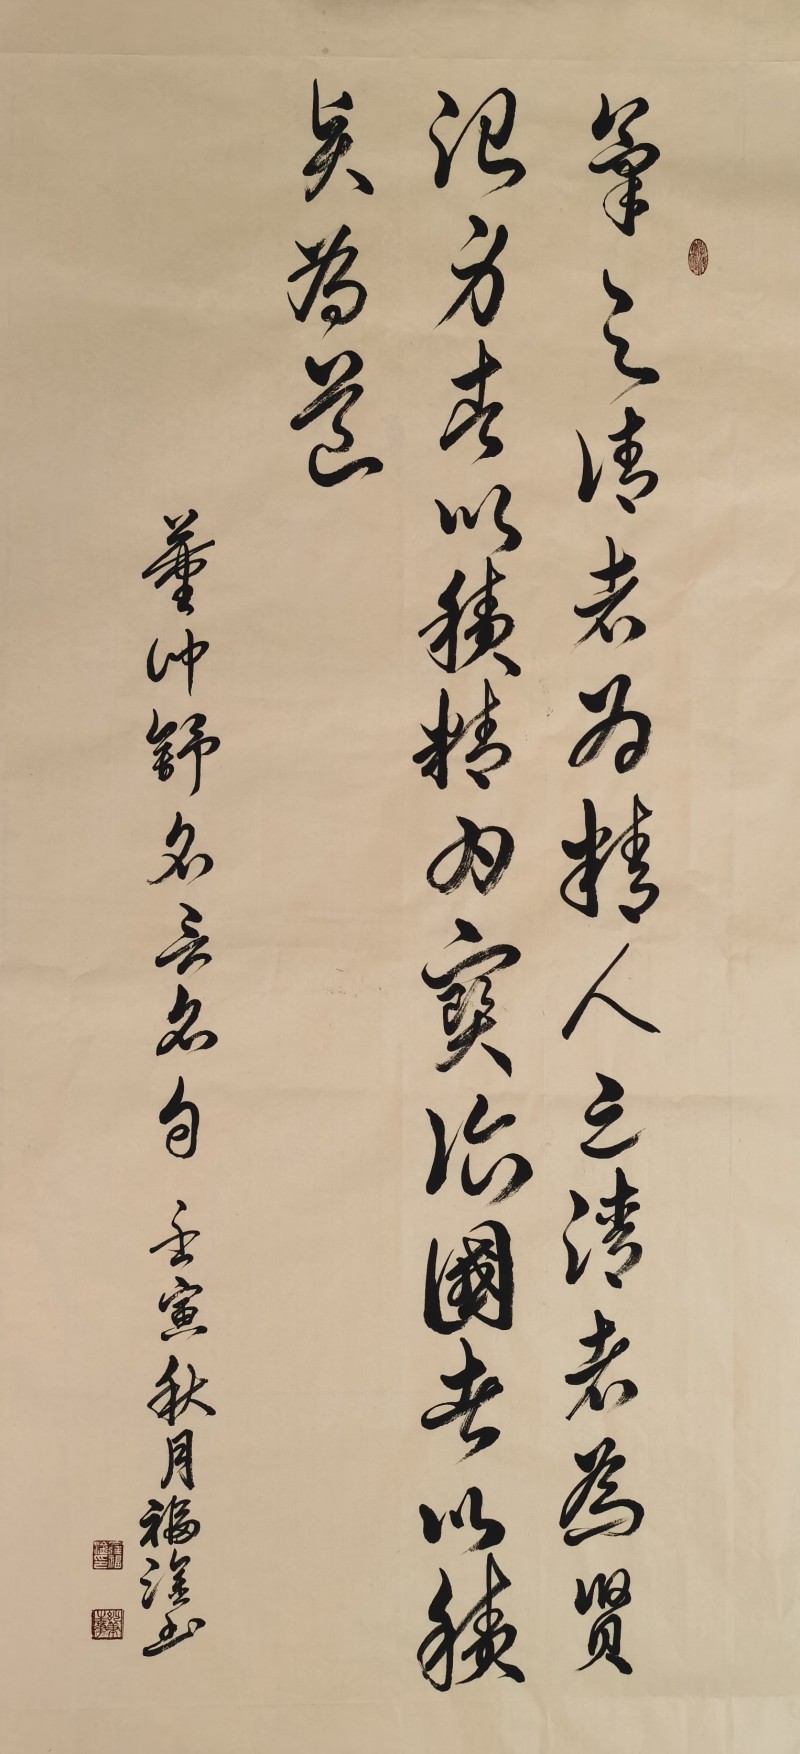 氣之清者为精人之清者為賢
治身者以積精为寶治國者以積
賢為道
董仲舒名言名句 壬寅秋月福淦书